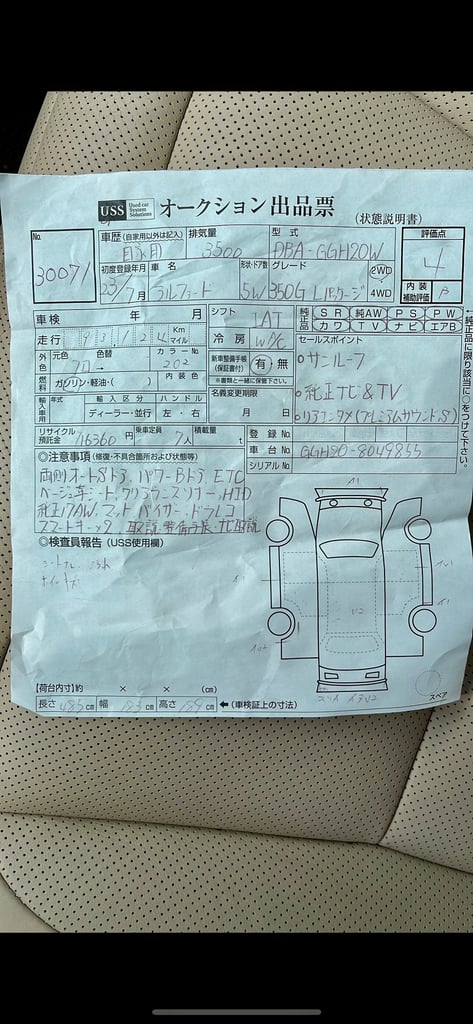 USS Used car System Solutions オークション出品票 (状態説明書)
No. 30071
車歴 (自家用以外は記入) 自家用
排気量 3500
型式 DBA-GGH20W
評価点 4
初度登録年月 23/7月
車名 アルファード
形状・ドア数 5W
グレード 350G Lパッケージ
2WD
4WD
内装補助評価 B
車検 年 月
シフト IAT
純正品 SR 純AW PS PW
カワ TV ナビ エアB
↑純正品に限り該当に○をつけて下さい。
走行 93,124 Km マイル
冷房 W/C
セールスポイント
外色 元色 色替 クロ→
カラーNo. 202
新車整備手帳 (保証書付) 有・無
※書類と一緒に保管して下さい。
・サンルーフ
燃料 ガソリン・軽油・( )
内装色
名義変更期限
月 日
・純正ナビ&TV
輸入車用 年式 輸入区分 ハンドル
ディーラー・並行 左・右
・リアエンタメ(プレミアムサウンドS)
リサイクル預託金 16360円
乗車定員 7人
積載量 t
登録No.
車台No. GGH20-8049855
シリアルNo.
◎注意事項(修復・不具合箇所および状態等)
両側オートSドラ、パワーBドラ、ETC
ベージュ革シート、クリアランスソナー、HID
純正17AW、マット、バイザー、ドラレコ
スマートキー2、取説、整備手帳、ナビ取説
◎検査員報告 (USS使用欄)
A1
U2
スペア
【荷台内寸】約 × × (cm)
長さ 485cm 幅 183cm 高さ 189cm ←(車検証上の寸法)